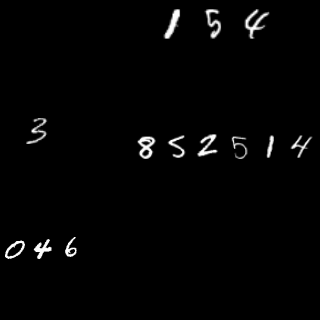 154
3
852514
046